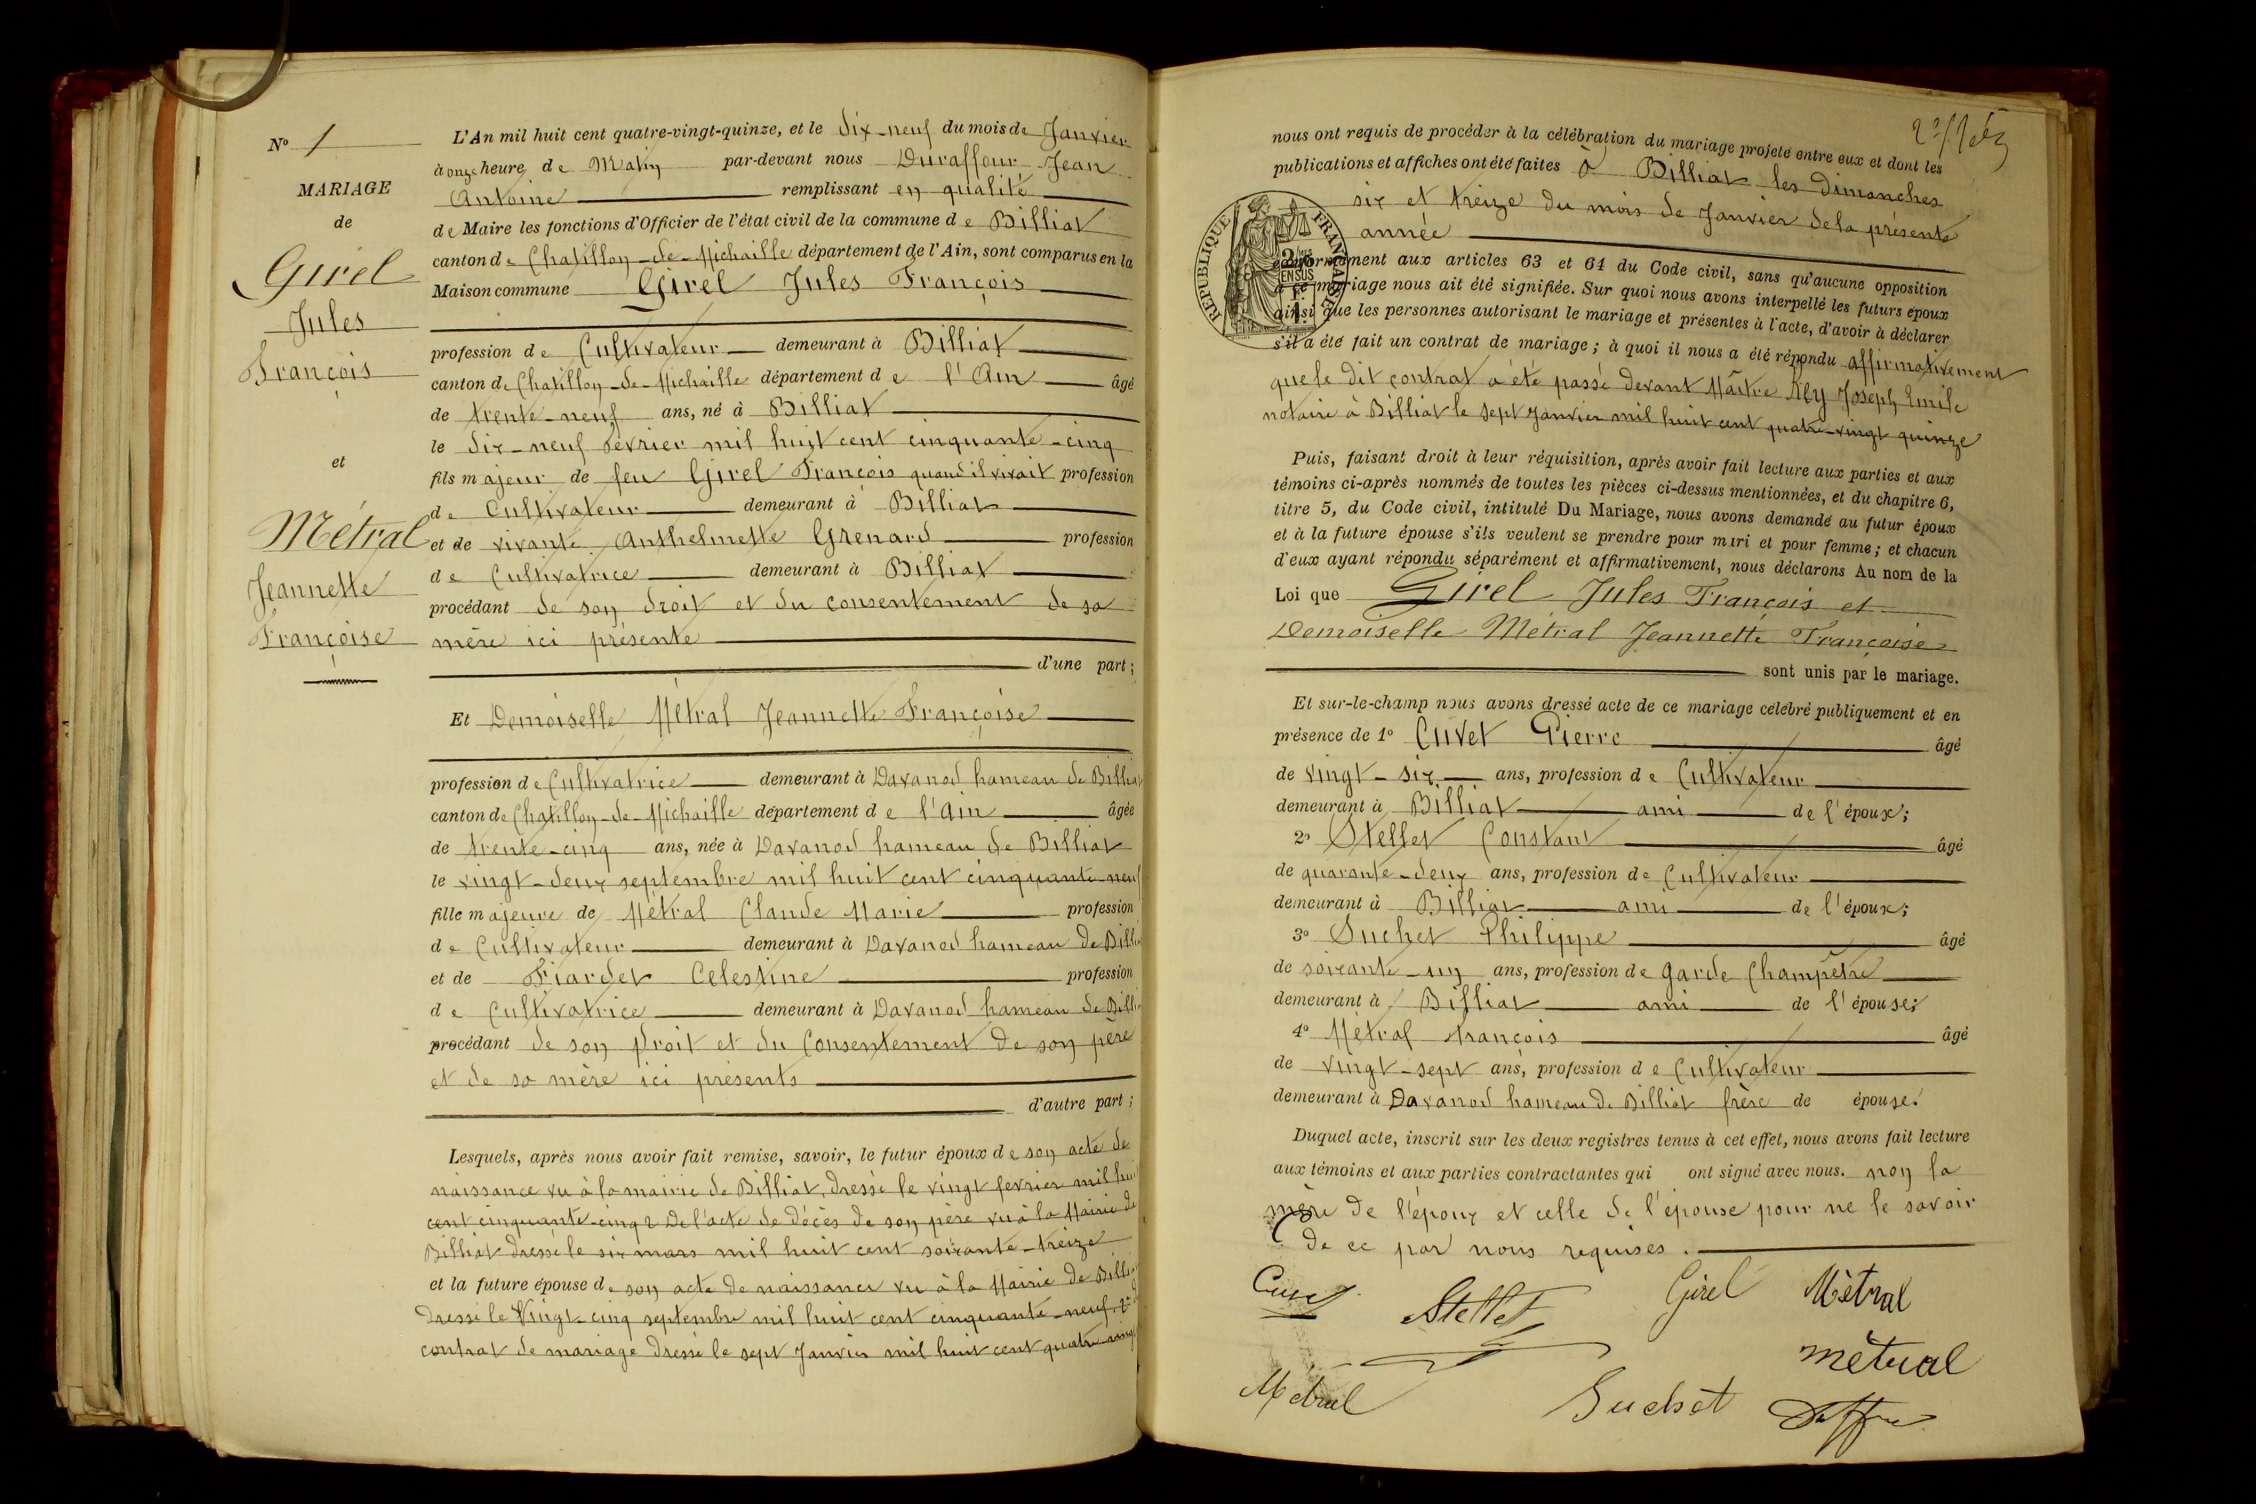 N° 1
MARIAGE
de
Girel
Jules
François
et
Métral
Jeannette
Françoise
L'An mil huit cent quatre-vingt-quinze, et le dix-neuf du mois de Janvier
à onze heures de Matin par-devant nous Duraffour Jean
Antoine remplissant en qualité
de Maire les fonctions d'Officier de l'état civil de la commune de Billiat
canton de Chatillon-de-Michaille département de l'Ain, sont comparus en la
Maison commune Girel Jules François
profession de Cultivateur demeurant à Billiat
canton de Chatillon-de-Michaille département de l'Ain âgé
de trente-neuf ans, né à Billiat
le dix-neuf février mil huit cent cinquante-cinq
fils majeur de feu Girel François quand il vivait profession
de Cultivateur demeurant à Billiat
et de vivante Anthelmette Grenard profession
de Cultivatrice demeurant à Billiat
procédant de son droit et du consentement de sa
mère ici présente
d'une part;
Et Demoiselle Métral Jeannette Françoise
profession de Cultivatrice demeurant à Davanod hameau de Billiat
canton de Chatillon-de-Michaille département de l'Ain âgée
de trente-cinq ans, née à Davanod hameau de Billiat
le vingt-deux septembre mil huit cent cinquante-neuf
fille majeure de Métral Claude Marie profession
de Cultivateur demeurant à Davanod hameau de Billi
et de Fiardet Celestine profession
de Cultivatrice demeurant à Davanod hameau de Billi
procédant de son droit et du Consentement de son père
et de sa mère ici présents
d'autre part;
Lesquels, après nous avoir fait remise, savoir, le futur époux de son acte de
naissance vu à la mairie de Billiat, dressé le vingt fevrier mil hui
cent cinquante-cinq 2 De l'acte de décès de son père vu à la Mairie de
Billiat dressé le six mars mil huit cent soixante-treize
et la future épouse de son acte de naissance vu à la Mairie de Billi
dressé le Vingt-cinq septembre mil huit cent cinquante-neuf
contrat de mariage dressé le sept Janvier mil huit cent quatre-ving
nous ont requis de procéder à la célébration du mariage projeté entre eux et dont les
publications et affiches ont été faites à Billiat les Dimanches
six et treize du mois de Janvier de la présente
année
conformément aux articles 63 et 64 du Code civil, sans qu'aucune opposition
à ce mariage nous ait été signifiée. Sur quoi nous avons interpellé les futurs époux
ainsi que les personnes autorisant le mariage et présentes à l'acte, d'avoir à déclarer
s'il a été fait un contrat de mariage; à quoi il nous a été répondu affirmativement
que le dit contrat a été passé devant Maître Joseph Emile
notaire à Billiat le sept Janvier mil huit cent quatre-vingt quinze
RÉPUBLIQUE FRANÇAISE
Puis, faisant droit à leur réquisition, après avoir fait lecture aux parties et aux
témoins ci-après nommés de toutes les pièces ci-dessus mentionnées, et du chapitre 6,
titre 5, du Code civil, intitulé Du Mariage, nous avons demandé au futur époux
et à la future épouse s'ils veulent se prendre pour mari et pour femme; et chacun
d'eux ayant répondu séparément et affirmativement, nous déclarons Au nom de la
Loi que Girel Jules François et
Demoiselle Métral Jeannette Françoise
sont unis par le mariage.
Et sur-le-champ nous avons dressé acte de ce mariage célébré publiquement et en
présence de 1° Cuvet Pierre âgé
de vingt-six ans, profession de Cultivateur
demeurant à Billiat ami de l'époux;
2° Stellet Constant âgé
de quarante-deux ans, profession de Cultivateur
demeurant à Billiat ami de l'époux;
3° Suchet Philippe âgé
de soixante-un ans, profession de garde Champêtre
demeurant à Billiat ami de l'épouse;
4° Métral françois âgé
de vingt-sept ans, profession de Cultivateur
demeurant à Davanod hameau de Billiat frère de épouse.
Duquel acte, inscrit sur les deux registres tenus à cet effet, nous avons fait lecture
aux témoins et aux parties contractantes qui ont signé avec nous. non la
mère de l'époux et celle de l'épouse pour ne le savoir
de ce par nous requises.
Cuvet Stellet Girel Métral
Métral
Métral Suchet